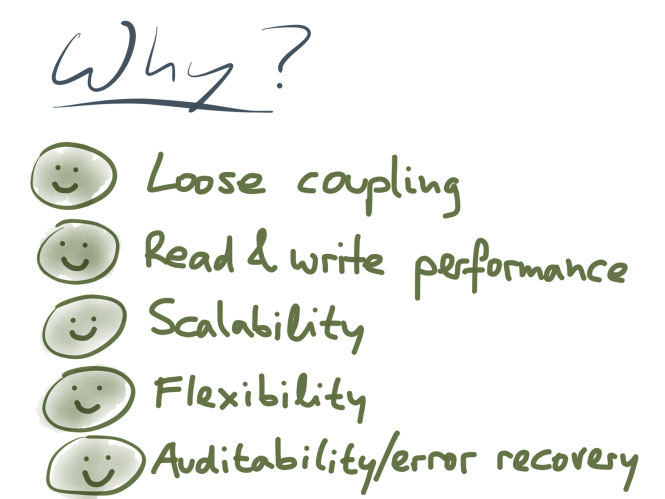 Why?
Loose coupling
Read & write performance
Scalability
Flexibility
Auditability/error recovery